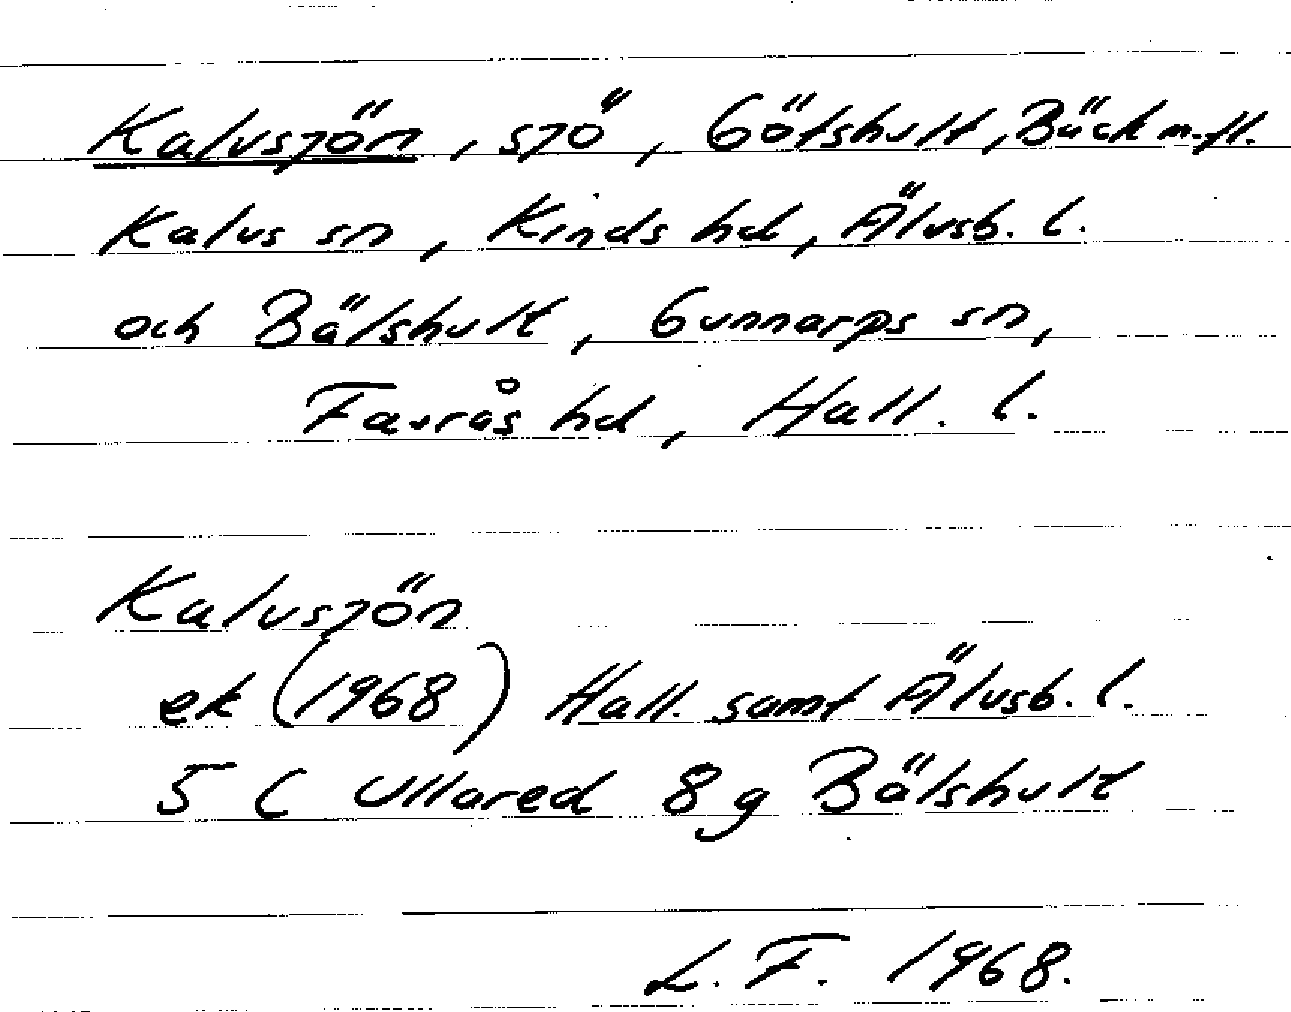 Kalvsjön, sjö, Götshult, Bäck m.fl.
Kalvs sn, Kinds hd, Älvsb. l.
och Bälshult, Gunnarps sn,
Faurås hd, Hall. l.
Kalvsjön
ek (1968) Hall. samt Älvsb. l.
5 C Ullared 8 g Bälshult
L. F. 1968.